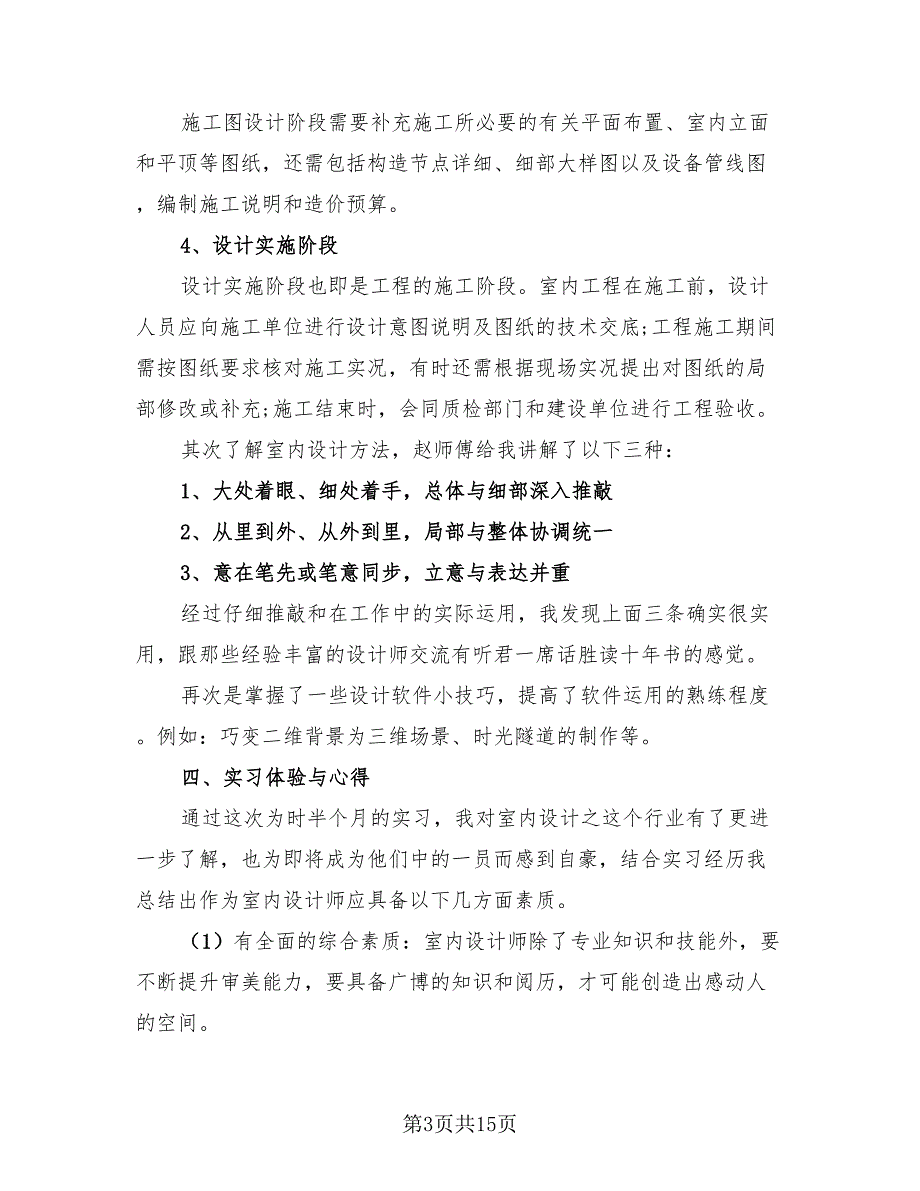 施工图设计阶段需要补充施工所必要的有关平面布置、室内立面
和平顶等图纸，还需包括构造节点详细、细部大样图以及设备管线图
，编制施工说明和造价预算。
4、设计实施阶段
设计实施阶段也即是工程的施工阶段。室内工程在施工前，设计
人员应向施工单位进行设计意图说明及图纸的技术交底;工程施工期间
需按图纸要求核对施工实况，有时还需根据现场实况提出对图纸的局
部修改或补充;施工结束时，会同质检部门和建设单位进行工程验收。
其次了解室内设计方法，赵师傅给我讲解了以下三种：
1、大处着眼、细处着手，总体与细部深入推敲
2、从里到外、从外到里，局部与整体协调统一
3、意在笔先或笔意同步，立意与表达并重
经过仔细推敲和在工作中的实际运用，我发现上面三条确实很实
用，跟那些经验丰富的设计师交流有听君一席话胜读十年书的感觉。
再次是掌握了一些设计软件小技巧，提高了软件运用的熟练程度
。例如：巧变二维背景为三维场景、时光隧道的制作等。
四、实习体验与心得
通过这次为时半个月的实习，我对室内设计之这个行业有了更进
一步了解，也为即将成为他们中的一员而感到自豪，结合实习经历我
总结出作为室内设计师应具备以下几方面素质。
（1）有全面的综合素质：室内设计师除了专业知识和技能外，要
不断提升审美能力，要具备广博的知识和阅历，才可能创造出感动人
的空间。
第3页共15页